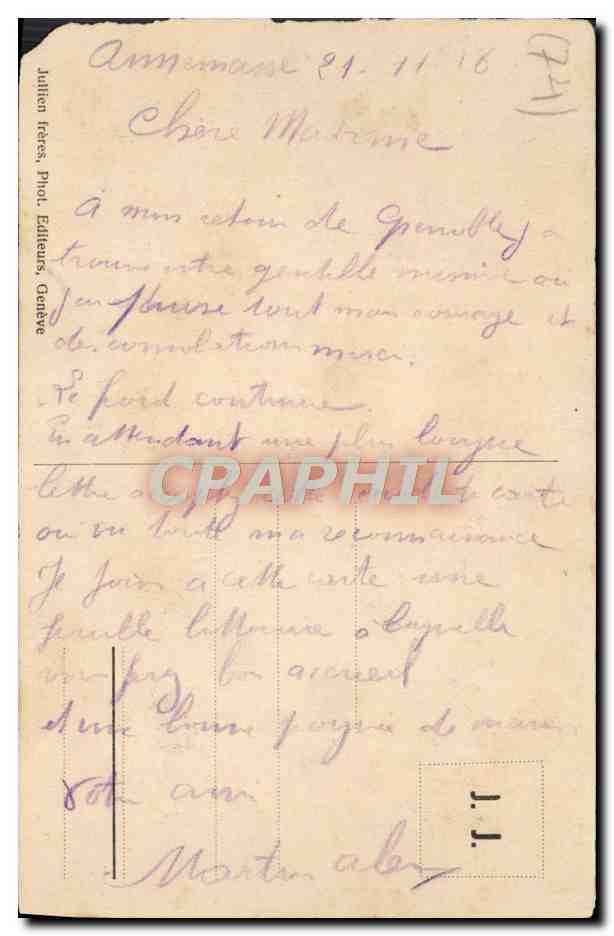 Annemasse 21. 11 16
(74)
Chère Madame
A mon retour de Grenoble j'a
trouve votre gentille missive ou
j'ai puise tout mon courage et
de consolation merci.
Le froid continue.
En attendant une plus longue
lettre carte
ou va toute ma reconnaissance
Je joins a cette carte une
feuille a laquelle
bon accueil
et une bonne poignée de main
Votre ami
Martin
Jullien frères, Phot. Editeurs, Genève
J. J.
CPAPHIL